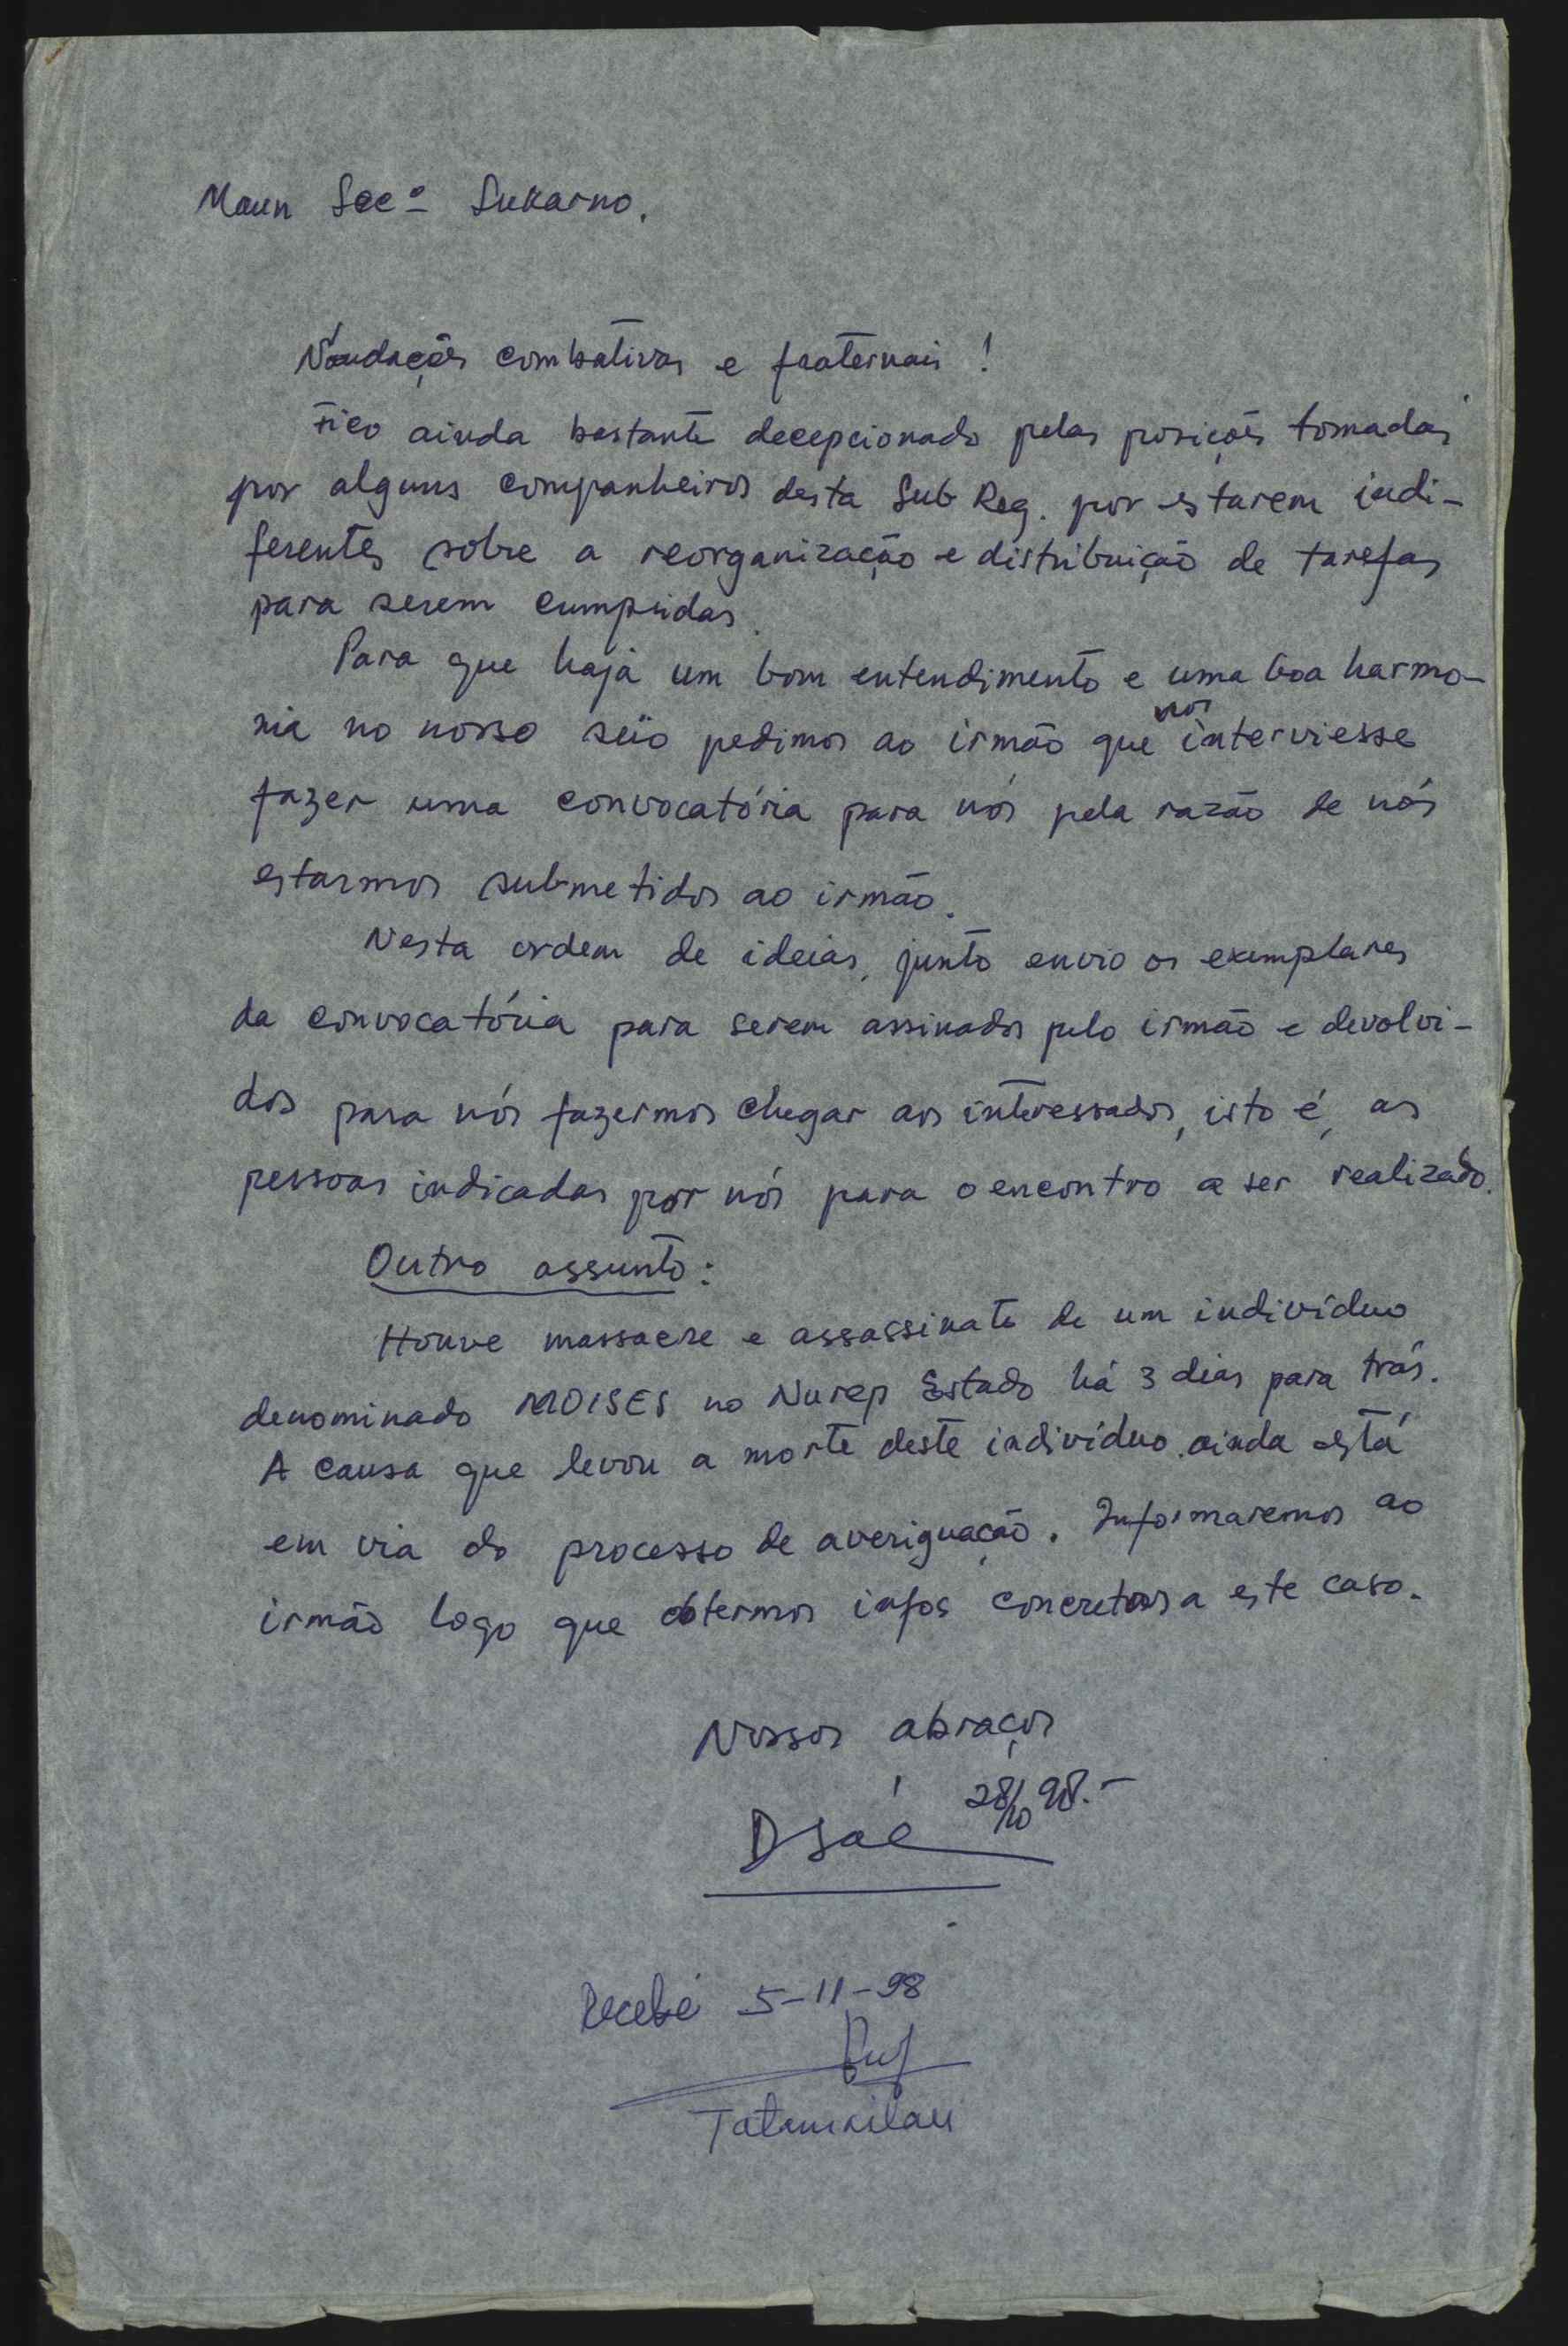 Maun Secº Sukarno.
Saudações combativas e fraternais!
Fico ainda bastante decepcionado pelas posições tomadas
por alguns companheiros desta Sub Reg. por estarem indi-
ferentes sobre a reorganização e distribuição de tarefas
para serem cumpridas.
Para que haja um bom entendimento e uma boa harmo-
nia no nosso seio pedimos ao irmão que nos interviesse
fazer uma convocatória para nós pela razão de nós
estarmos submetidos ao irmão.
Nesta ordem de ideias, junto envio os exemplares
da convocatória para serem assinados pelo irmão e devolvi-
dos para nós fazermos chegar aos interessados, isto é, as
pessoas indicadas por nós para o encontro a ser realizado.
Outro assunto:
Houve massacre e assassinato de um indivíduo
denominado MOISES no Nurep Estado há 3 dias para trás.
A causa que levou a morte deste indivíduo ainda está
em via do processo de averiguação. Informaremos ao
irmão logo que obtermos infos concretas a este caso.
Nossos abraços
28/10 98.-
Recebi 5-11-98